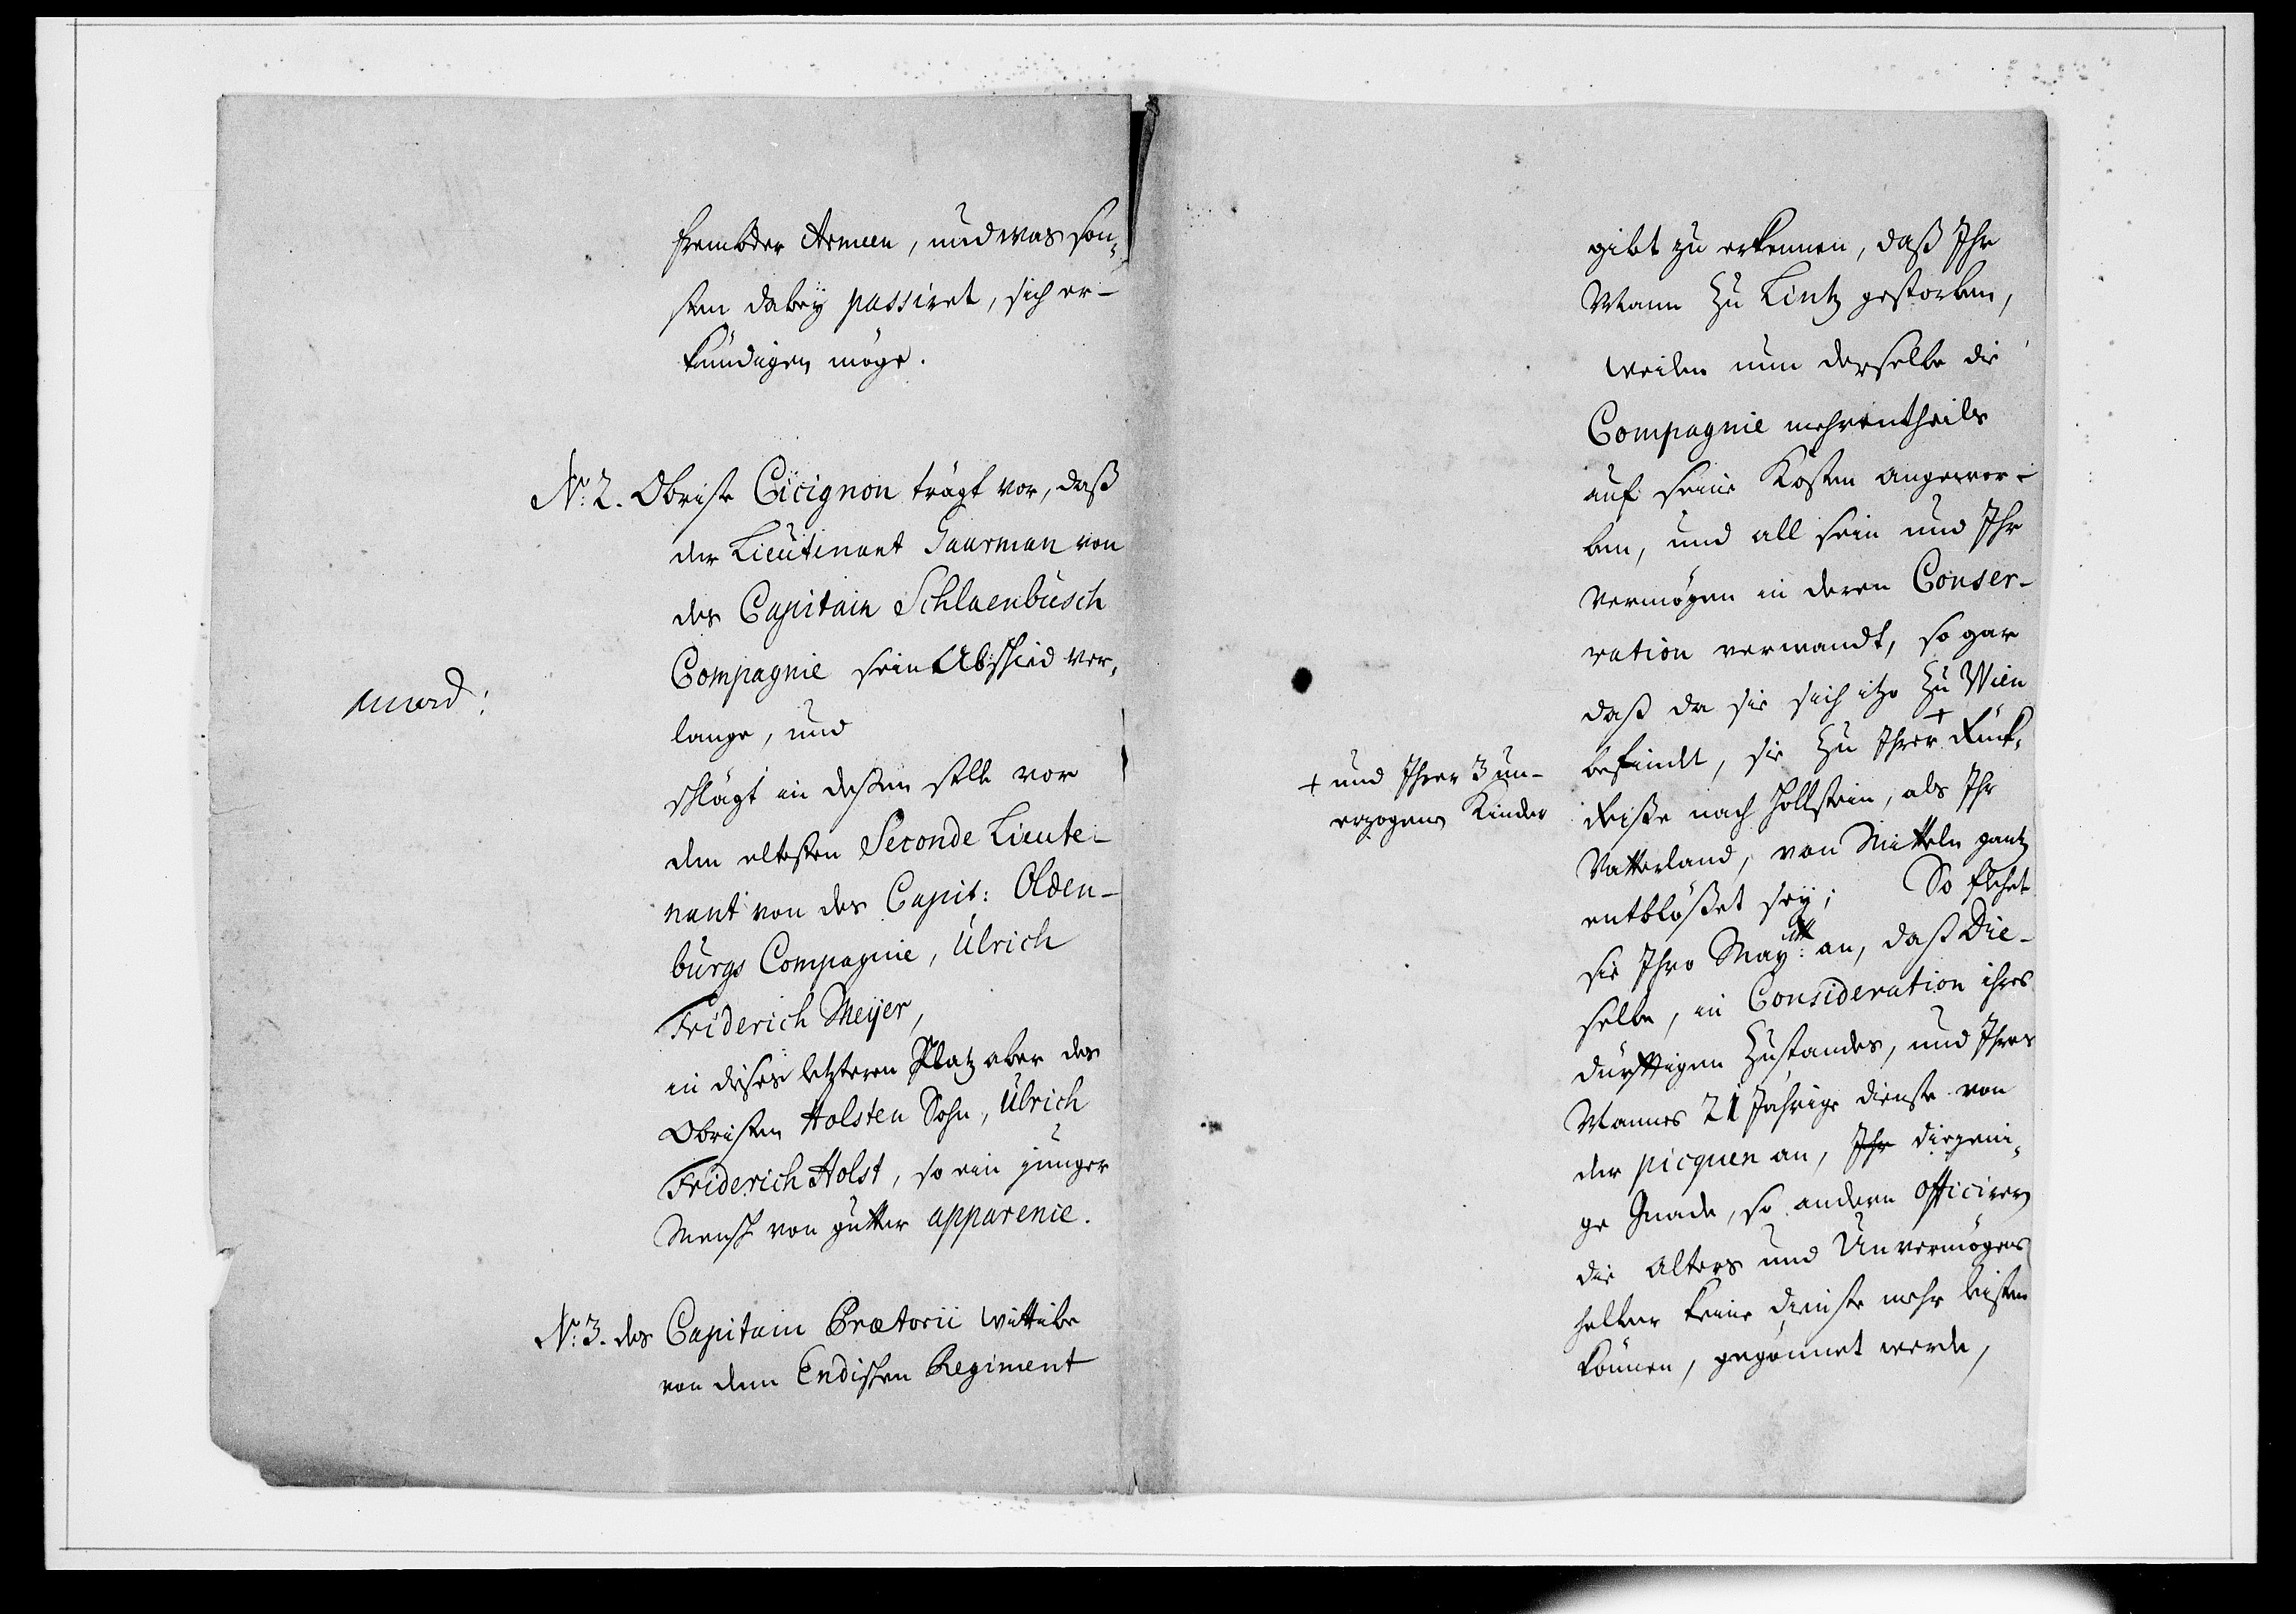 frembder Armeen, und was son-
sten dabeÿ passiret, sich er-
kundigen möge.
No: 2. Obriste Cicignon trägt vor, daß
der Lieutenant Gaarman von
des Capitain Schlaenbusch
Compagnie sein Abschied ver-
lange, und
schlägt in deßen stelle vor
den eltesten Seconde Lieute-
nant von des Capit: Olden-
burgs Compagnie, Ulrich
Friderich Meijer,
in dises letzteren Platz aber des
Obristen Holsten Sohn, Ulrich
Friderich Holst, so ein junger
Mensch von gutter apparence.
No: 3. des Capitain Prætorii Wittibe
von dem Endischen Regiment
gibt zu erkennen, daß Ihr
Mann zu Lintz gestorben,
weilen nun derselbe die
Compagnie mehrentheils
auf seine Kosten angewor-
ben, und all sein und Ihr
vermögen in deren Conser-
vation verwandt, so gar
daß da sie sich itzo zu Wien
befindt, sie zu Ihrer + Rück-
Reiße nach Hollstein, als Ihr
Vatterland, von Mitteln gantz
entblößet seÿ; So flehet
sie Ihro Maÿtt: an, daß Die-
selbe, in Consideration ihres
dürfftigen Zustandes, und Ihres
Mannes 21 Jährige dienste von
der picquen an, Ihr diejeni-
ge Gnade, so andern Officiren
die Alters und Unvermögens
halber keine dienste mehr leisten
können, gegönnet werde,
+ und Ihrer 3 un-
erzogenen Kinder